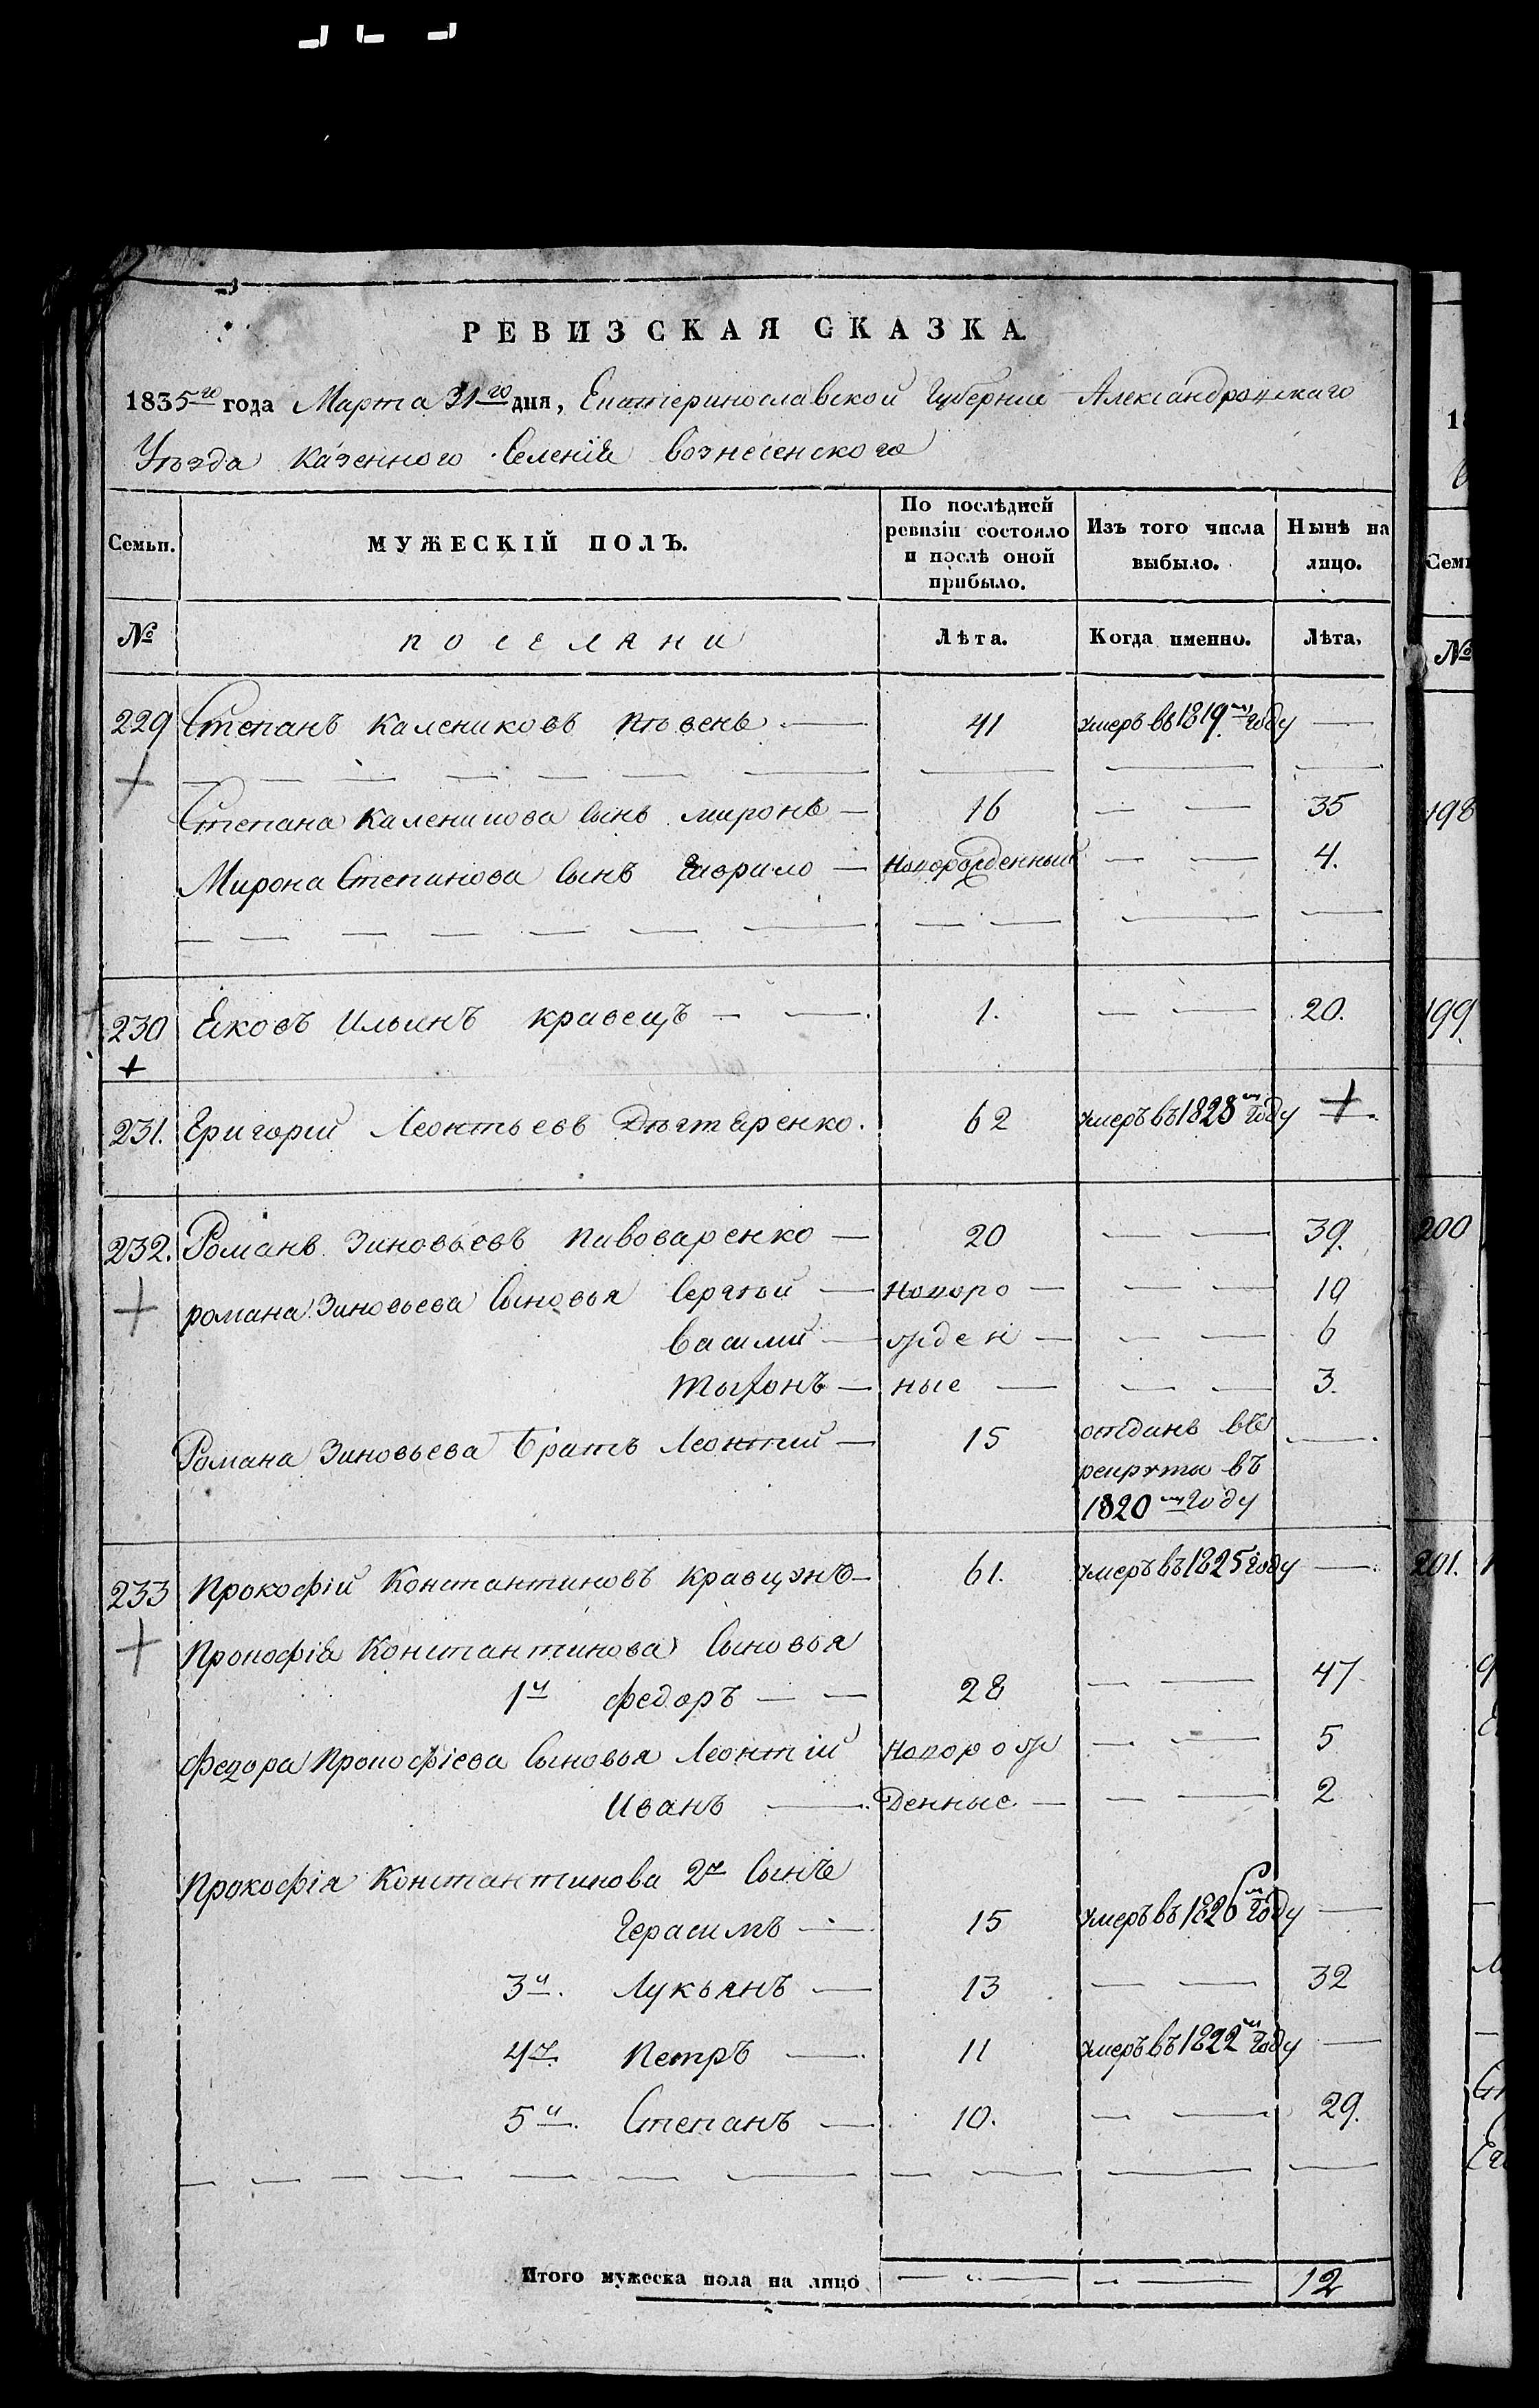 РЕВИЗСКАЯ СКАЗКА
1835го года Марта 31го дня, Екатеринославской Губернии Александровскаго
Уѣзда казенного Селенія вознесенского
Семьи. МУЖЕСКІЙ ПОЛЪ. По послѣдней ревизіи состояло и послѣ оной прибыло. Изъ того числа выбыло. Нынѣ на лицо.
№ поселяни Лѣта. Когда именно. Лѣта.
229 Степанъ Калениковъ пѣвень 41 умеръ въ 1819м году —
Степана Каленикова Сынъ миронъ — 16 — — 35
Мирона Степанова Сынъ Гаврило — Новорожденный — — 4.
230 Яковъ Ильинъ кравецъ — — 1. — — 20.
231. Григорій Леонтьевъ Дѣгтяренко. 62 умеръ въ 1828м году —
232. Романъ Зиновьевъ пивоваренко — 20 — — 39.
романа Зиновьева Сыновья Сергѣй — Новоро — — — 19
Василий — жден — — — 6
Тыхонъ — ные — — — 3.
Романа Зиновьева Братъ Леонтий — 15 отданъ въ —
рекруты въ
1820м году
233 Прокофій Константиновъ кравцунъ — 61. умеръ въ 1825 году —
Прокофія Константинова Сыновья
1й федоръ — — 28 — — 47
федора Прокофіева Сыновья Леонтій Новорож — — 5
Иванъ — Денные — — — 2
Прокофія Константинова 2й Сынъ
Герасимъ — 15 умеръ въ 1826м году —
3й. Лукьянъ — 13 — — 32
4й. Петръ — 11 умеръ въ 1822м году —
5й. Степанъ — 10. — — 29.
Итого мужеска пола на лицо — — 12
18
Семь
№
198
199
200
201.